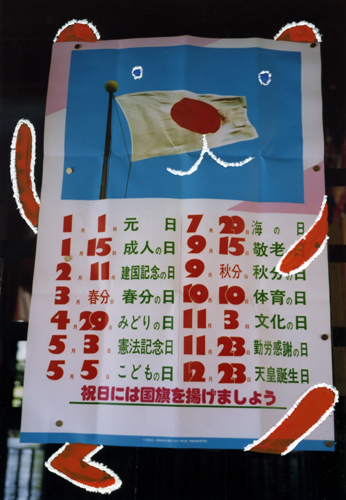 1月1日 元日
1月15日 成人の日
2月11日 建国記念の日
3月春分日 春分の日
4月29日 みどりの日
5月3日 憲法記念日
5月5日 こどもの日
7月20日 海の日
9月15日 敬老の日
9月秋分日 秋分の日
10月10日 体育の日
11月3日 文化の日
11月23日 勤労感謝の日
12月23日 天皇誕生日
祝日には国旗を揚げましょう